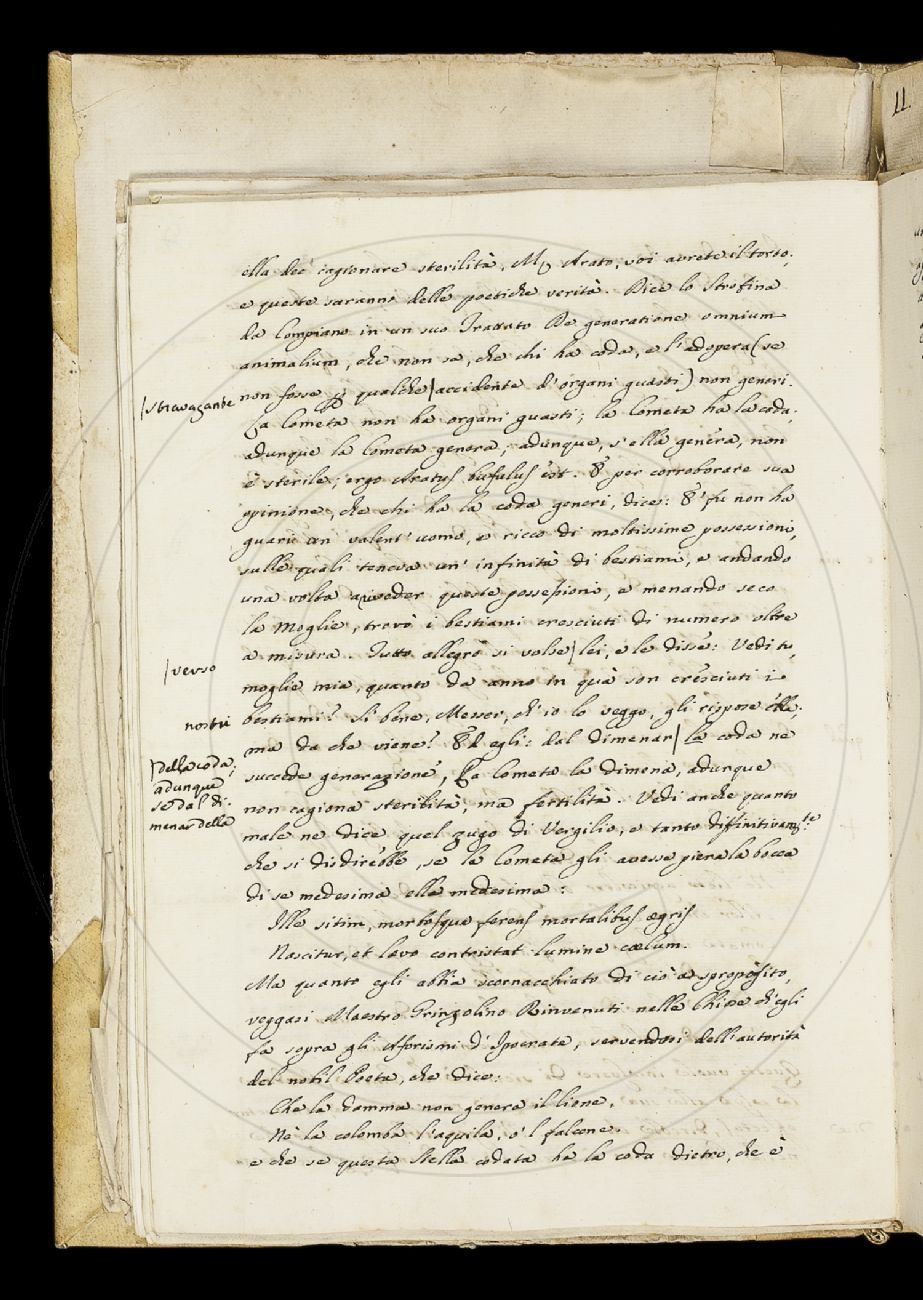 11.
ella dee cagionare sterilità. M. Arato, voi avrete il torto;
e queste saranno delle poetiche verità. Dice lo Strofina
da Compiano in un suo Trattato De generatione omnium
animalium, che non sa, che chi ha coda, e l'adopera (se
non fosse p qualche | accidente d'organi guasti) non generi.
|stravagante
La Cometa non ha organi guasti; la Cometa ha la coda;
adunque la Cometa genera; adunque, s'ella genera, non
è sterile; ergo Aratus bufulus est. E per corroborare sua
opinione, che chi ha la coda generi, dice: E' fu non ha
guari un valent'uomo, e ricco di moltissime possessioni,
sulle quali teneva un'infinità di bestiami, e andando
una volta a riveder queste possessioni, e menando seco
la Moglie, trovò i bestiami cresciuti di numero oltre
a misura. Tutto allegro si volse | lei, e le disse: Vedi tu,
|verso
moglie mia, quanto da anno in quà son cresciuti i
bestiami? Sì bene, Messer, ch'io lo veggo, gli rispose ella;
nostri
ma da che viene? Ed egli: dal dimenar | la coda ne
|della coda;
adunque
se dal di-
menar della
succede generazione, La Cometa la dimena, adunque
non cagiona sterilità, ma fertilità. Vedi anche quanto
male ne dice quel zugo di Vergilio, e tanto diffinitivam.te
che si disdirebbe, se la Cometa gli avesse piena la bocca
di se medesima ella medesima:
Ille sitim, morbosque ferens mortalibus ægris
Nascitur, et levo contristat lumine cœlum.
Ma quanto egli abbia scornacchiato di ciò a sproposito,
veggasi Maestro Grinzolino Rinvenuti nelle Chiose ch'egli
fa sopra gli Aforismi d'Ipocrate, servendosi dell'autorità
del nobil Poeta, che dice:
Che la Damma non genera il lione,
Nè la colomba l'aquila, o'l falcone.
e che se questa Stella codata ha la coda dietro, che è